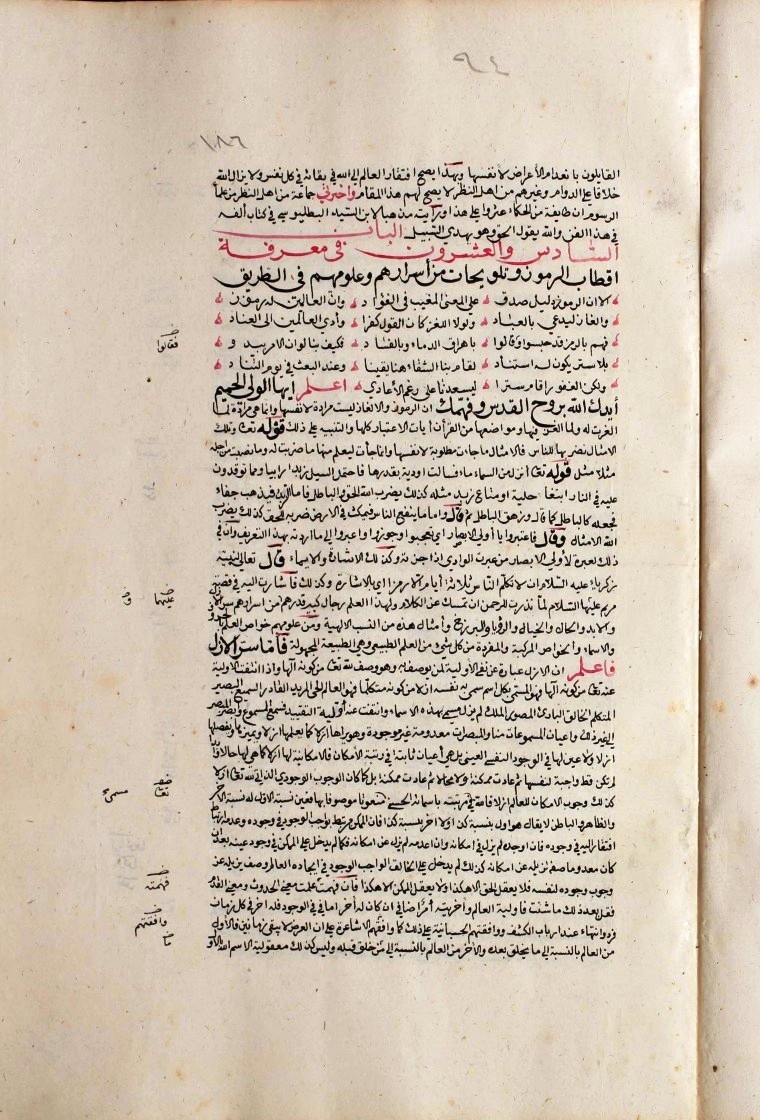 ٩٤
١٨٦
القايلون بانعدام الأعراض لانفسها وبهذا يصح افتقار العالم الى الله في بقائه في كل نفس ولا يزال الله
خلاقا على الدوام وغيرهم من اهل النظر لا يصح لهم هذا المقام واخبرني جماعة من اهل النظر من علماء
الرسوم ان طايفة من الحكماء عثروا على هذا ورأيته مذهبا لابن السيد البطليوسي في كتاب ألفه
في هذا الفن والله يقول الحق وهو يهدي السبيل الباب
السادس والعشرون في معرفة
اقطاب الرموز وتلويحات من أسرارهم وعلومهم في الطريق
الا ان الرموز دليل صدق على المعنى المغيب في الفؤاد وان العالمين له رموز
والغاز ليدعى بالعباد ولولا اللغز كان القول كفرا وأدى العالمين الى العناد
فهم بالرمز قد حسبوا وقالوا باهراق الدماء وبالفساد فكيف بنا لو ان الامر يبدو
بلا ستر يكون له استناد لقام بنا الشقاء هنا يقينا وعند البعث في يوم التناد
ولكن الغفور اقام سترا ليسعدنا على رغم الأعادي اعلم ايها الولي الحميم
أيدك الله بروح القدس وفهمك ان الرموز والالغاز ليست مرادة لانفسها وانما هي مرادة لما
الغزت له ولما الغز فيها ومواضعها من القرآن آيات الاعتبار كلها والتنبيه على ذلك قوله تعالى وتلك
الامثال نضربها للناس فالامثال ما جاءت مطلوبة لانفسها وانما جاءت ليعلم منها ما ضربت له وما نصبت من اجله
مثلا مثل قوله تعالى أنزل من السماء ماء فسالت اودية بقدرها فاحتمل السيل زبدا رابيا ومما توقدون
عليه في النار ابتغاء حلية او متاع زبد مثله كذلك يضرب الله الحق والباطل فاما الزبد فيذهب جفاء
فجعله كالباطل كما قال وزهق الباطل ثم قال واما ما ينفع الناس فيمكث في الارض ضربه للحق كذلك يضرب
الله الامثال وقال فاعتبروا يا أولي الابصار اي تعجبوا وجوزوا واعبروا الى ما اردته بهذا التعريف وان في
ذلك لعبرة لأولي الابصار من عبرت الوادي اذا جزته وكذلك الاشارة والايماء قال تعالى لنبيه
زكرياء عليه السلام ان لا تكلم الناس ثلاثة أيام الا رمزا اي بالاشارة وكذلك فأشارت اليه في قصة
مريم عليها السلام لما نذرت للرحمن ان تمسك عن الكلام ولهذا العلم رجال كبير قدرهم من اسرارهم سر الازل
والابد والحال والخيال والرؤيا والبرزخ وأمثال هذه من النسب الالهية ومن علومهم خواص العلم بالحروف
والاسماء والخواص المركبة والمفردة من كل شيء من العلم الطبيعي وهي الطبيعة المجهولة فأما سر الازل
فاعلم ان الازل عبارة عن نفي الاولية لمن يوصف به وهو وصف لله تعالى من كونه آلها واذا انتفت الاولية
عنه تعالى من كونه آلها فهو المسمى بكل اسم سمى به نفسه ازلا من كونه متكلما فهو العالم الحي المريد القادر السميع البصير
المتكلم الخالق البارئ المصور الملك لم يزل مسمى بهذه الاسماء وانتفت عنه أولية التقييد فسمع المسموع وابصر المبصر
الى غير ذلك واعيان المسموعات منا والمبصرات معدومة غير موجودة وهو يراها ازلا كما يعلمها ازلا ويميزها ويفصلها
ازلا ولا عين لها في الوجود النفسي العيني بل هي أعيان ثابتة في رتبة الامكان فالامكانية لها ازلا كما هي لها حالا وابدا
لم تكن قط واجبة لنفسها ثم عادت ممكنة ولا محالا ثم عادت ممكنة بل كما كان الوجوب الوجودي الذاتي لله تعالى ازلا
كذلك وجوب الامكان للعالم ازلا فالله في مرتبته باسمائه الحسنى منعوتا موصوفا بها فعين نسبة الاول له نسبة الآخر
والظاهر والباطن لا يقال هو اول بنسبة كذا ولا آخر بنسبة كذا فان الممكن مرتبط بواجب الوجود في وجوده وعدمه ارتباط
افتقار اليه في وجوده فان اوجده لم يزل في امكانه وان اعدمه لم يزل عن امكانه فكما لم يدخل على الممكن في وجود عينه بعد ان
كان معدوما صفة تزيله عن امكانه كذلك لم يدخل على الخالق الواجب الوجود في ايجاده العالم وصف يزيله عن
وجوب وجوده لنفسه فلا يعقل الحق الا هكذا ولا يعقل الممكن الا هكذا فان فهمت علمت معنى الحدوث ومعنى القدم
فقل بعد ذلك ما شئت فاولية العالم وآخريته أمر اضافي ان كان له آخر اما في الوجود فله آخر في كل زمان
فرد وانتهاء عند ارباب الكشف ووافقتهم الحسبانية على ذلك كما وافقتهم الاشاعرة على ان العرض لا يبقى زمانين فالأول
من العالم بالنسبة الى ما يخلق بعده والآخر من العالم بالنسبة الى من خلق قبله وليس كذلك معقولية الاسم الله الاول
فقالوا
عليهما
تعالى
مسمى
فهمته
وافقتهم